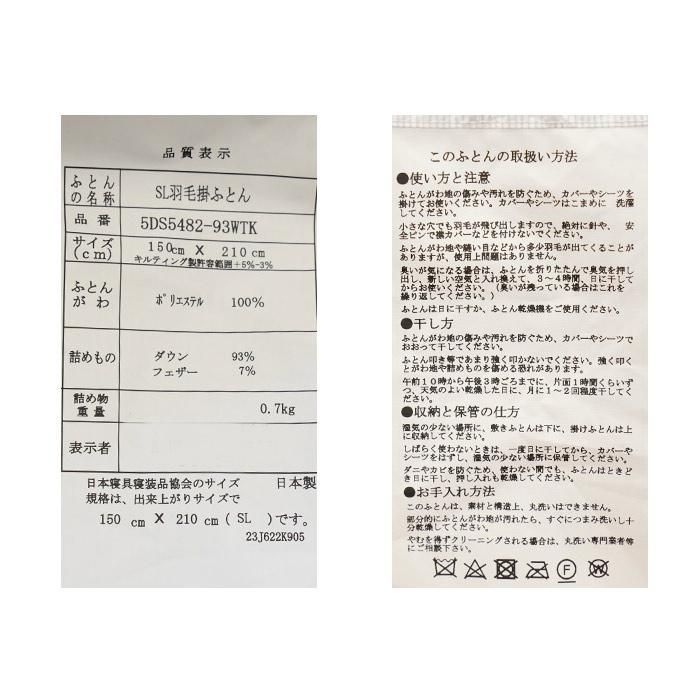 品質表示
ふとんの名称 SL羽毛掛ふとん
品番 5DS5482-93WTK
サイズ(cm) 150cm X 210cm
キルティング製許容範囲+5%-3%
ふとんがわ ポリエステル 100%
詰めもの ダウン 93%
フェザー 7%
詰め物重量 0.7kg
表示者
日本寝具寝装品協会のサイズ 日本製
規格は、出来上がりサイズで
150 cm X 210 cm (SL)です。
23J622K905
このふとんの取扱い方法
●使い方と注意
ふとんがわ地の傷みや汚れを防ぐため、カバーやシーツを
掛けてお使いください。カバーやシーツはこまめに 洗濯
してください。
小さな穴でも羽毛が飛び出しますので、絶対に針や、 安
全ピンで襟カバーなどを付けないでください。
ふとんがわ地や縫い目などから多少羽毛が出てくることが
ありますが、使用上問題はありません。
臭いが気になる場合は、ふとんを折りたたんで臭気を押し
出し、新しい空気と入れ換えて、3~4時間、日に干して
からお使いください。(臭いが残っている場合はこれを
繰り返してください。)
ふとんは日に干すか、ふとん乾燥機をご使用ください。
●干し方
ふとんがわ地の傷みや汚れを防ぐため、カバーやシーツで
おおって干してください。
ふとん叩き等であまり強く叩かないでください。強く叩く
とがわ地や詰めものを傷める恐れがあります。
午前10時から午後3時ごろまでに、片面1時間くらいず
つ、天気のよい乾燥した日に、月に1~2回程度干してく
ださい。
●収納と保管の仕方
湿気の少ない場所に、敷きふとんは下に、掛けふとんは上
に収納してください。
しばらく使わないときは、一度日に干してから、カバーや
シーツをはずし、湿気の少ない場所に保管してください。
ダニやカビを防ぐため、使わない間でも、ふとんはときど
き日に干し、押し入れも乾燥してください。
●お手入れ方法
このふとんは、素材と構造上、丸洗いはできません。
部分的にふとんがわ地が汚れたら、すぐにつまみ洗いし十
分乾燥してください。
やむを得ずクリーニングされる場合は、丸洗い専門業者等
にご相談下さい。
F
W